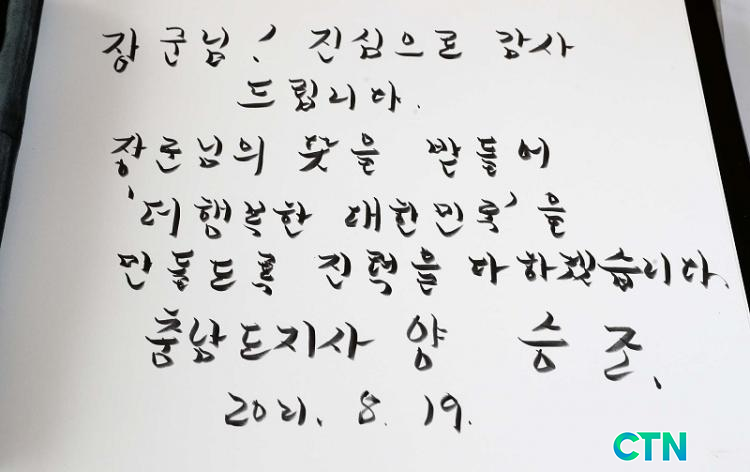 장군님! 진심으로 감사
드립니다.
장군님의 뜻을 받들어
'더 행복한 대한민국'을
만들도록 진력을 다하겠습니다.
충남도지사 양 승 조.
2021. 8. 19.
CTN